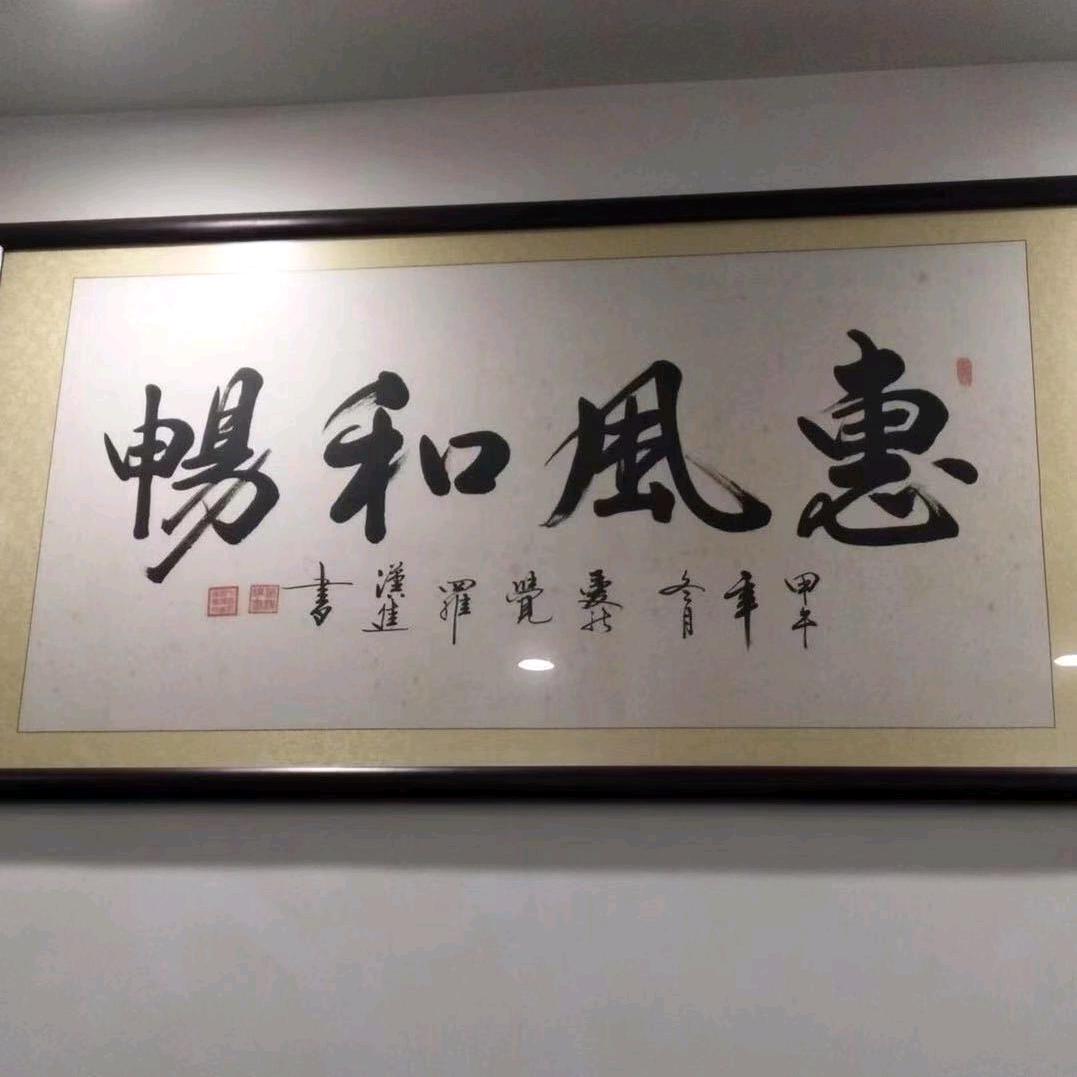 惠風和暢
甲午年冬月愛新覺羅漢進書